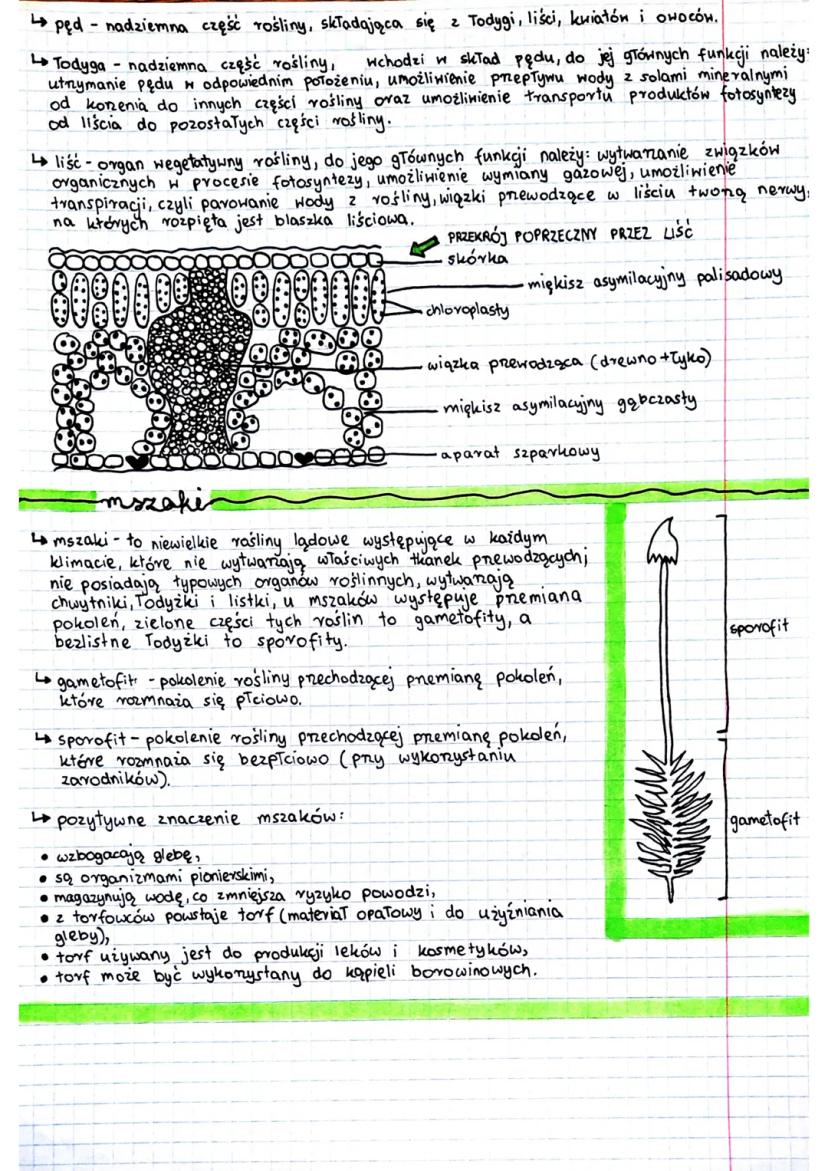 ↳ pęd - nadziemna część rośliny, składająca się z łodygi, liści, kwiatów i owoców.
↳ łodyga - nadziemna część rośliny, wchodzi w skład pędu, do jej głównych funkcji należy:
utrzymanie pędu w odpowiednim położeniu, umożliwienie przepływu wody z solami mineralnymi
od korzenia do innych części rośliny oraz umożliwienie transportu produktów fotosyntezy
od liścia do pozostałych części rośliny.
↳ liść - organ wegetatywny rośliny, do jego głównych funkcji należy: wytwarzanie związków
organicznych w procesie fotosyntezy, umożliwienie wymiany gazowej, umożliwienie
transpiracji, czyli parowanie wody z rośliny, wiązki przewodzące w liściu tworzą nerwy,
na których rozpięta jest blaszka liściowa.
PRZEKRÓJ POPRZECZNY PRZEZ LIŚĆ
skórka
miękisz asymilacyjny palisadowy
chloroplasty
wiązka przewodząca (drewno + łyko)
miękisz asymilacyjny gąbczasty
aparat szparkowy
mszaki
↳ mszaki - to niewielkie rośliny lądowe występujące w każdym
klimacie, które nie wytwarzają właściwych tkanek przewodzących;
nie posiadają typowych organów roślinnych, wytwarzają
chwytniki, łodyżki i listki, u mszaków występuje przemiana
pokoleń, zielone części tych roślin to gametofity, a
bezlistne łodyżki to sporofity.
↳ gametofit - pokolenie rośliny przechodzącej przemianę pokoleń,
które rozmnaża się płciowo.
↳ sporofit - pokolenie rośliny przechodzącej przemianę pokoleń,
które rozmnaża się bezpłciowo (przy wykorzystaniu
zarodników).
↳ pozytywne znaczenie mszaków:
• wzbogacają glebę,
• są organizmami pionierskimi,
• magazynują wodę, co zmniejsza ryzyko powodzi,
• z torfowców powstaje torf (materiał opałowy i do użyźniania
gleby),
• torf używany jest do produkcji leków i kosmetyków,
• torf może być wykorzystany do kąpieli borowinowych.
sporofit
gametofit